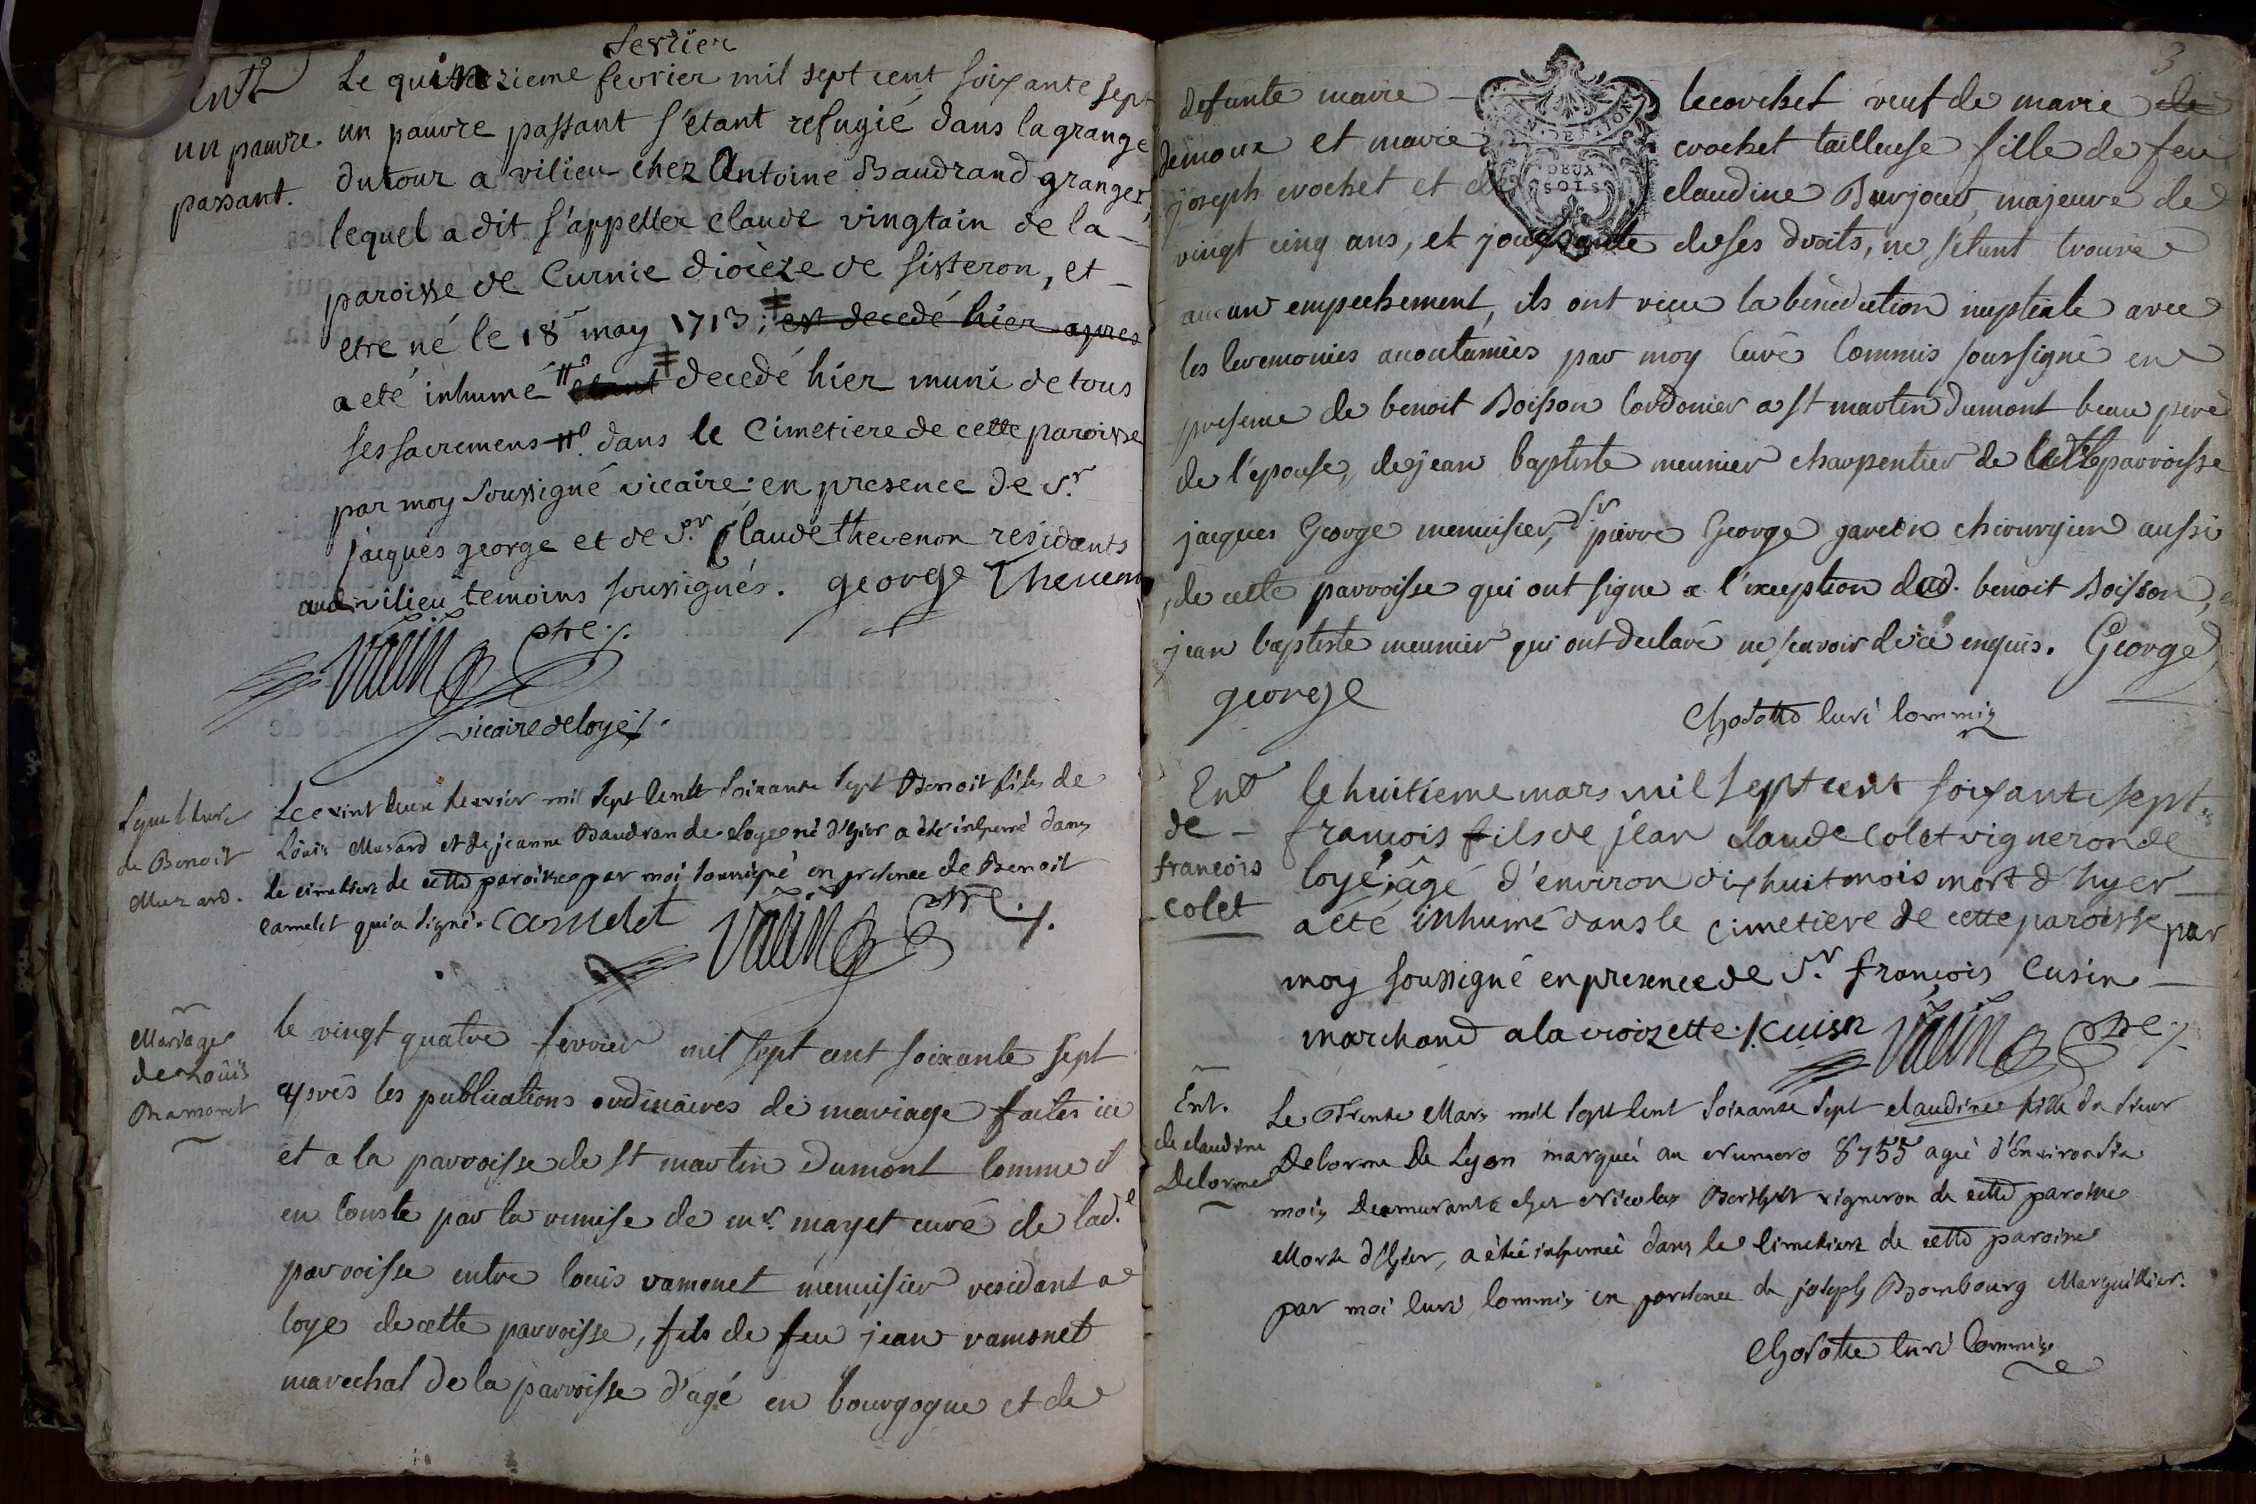 fevrier
Entt
un pauvre
passant.
Le quinzieme fevrier mil sept cent soixante sept
un pauvre passant s'etant refugié dans la grange
dutour a vilieu chez Antoine Baudrand granger,
lequel a dit s'appeller claude vingtain de la
paroisse de Curnie diocèze de sisteron, et
etre né le 18e may 1713; est decedé hier apres
a eté inhumé etant decedé hier muni de tous
ses sacremens dans le Cimetiere de cette paroisse
par moy soussigné vicaire en presence de Sr
jacques george et de Sr Claude thevenon residents
aud. vilieu temoins soussignés. george Thevenon
valin ptre
vicaire de loye
Sepulture
de Benoit
Muzard.
Le vint deux fevrier mil sept cents soixante sept Benoit fils de
Loüis Musard et de jeanne Baudran de loye né d'hier a été inhumé dans
le cimetiere de cette paroisse par moi soussigné en presence de Benoit
camelet qui a signé. camelet valin ptre
Mariage
de Loüis
Ramonet
le vingt quatre fevrier mil sept cent soixante sept
après les publications ordinaires de mariage faites ici
et a la parroisse de st martin Dumont comme il
en conste par la remise de mr. mayet curé de lad.e
parroisse entre louis ramonet menuisier residant a
loye de cette parroisse, fils de feu jean ramonet
marechal de la parroisse d'agé en bourgogne et de
3
defunte marie lecorchet veuf de marie de
demoux et marie crochet tailleuse fille de feu
DEUX
SOLS
joseph crochet et de claudine Burjoud, majeure de
vingt cinq ans, et jouissante de ses droits, ne s'etant trouvé
aucun empechement, ils ont recu la bénédiction nuptiale avec
les ceremonies accoutumées par moy Curé Commis soussigné en
presence de benoit Boisson Cordonier a st martin dumont beau pere
de l'épouse, de jean baptiste meunier charpentier de cette parroisse
jacques George menuisier, Sr pierre George garcon chirurgien aussi
de cette parroisse qui ont signé a l'exception dud. benoit Boisson, et
jean baptiste meunier qui ont declaré ne scavoir de ce enquis. George
george
Chosotte Curé Commis
Ent
de
francois
colet
le huitieme mars mil sept cent soixante sept
francois fils de jean claude Colet vigneron de
loye, âgé d'environ dix huit mois mort d'hyer
a été inhumé dans le cimetiere de cette paroisse par
moy soussigné en presence de Sr. françois Cusin
marchand a la croizette. Cuisn valin ptre
Ent.
de claudine
Delorme
Le Trente Mars mil sept cent soixante sept claudine fille du sieur
Delorme De Lyon marquée au Numero 8755 agée d'Environ six
mois Demeurante chez Nicolas Berthet vigneron de cette paroisse
Morte d'hier, a été inhumée dans le Cimetiere de cette paroisse
par moi Curé Commis en presence de joseph Bombourg Marguillier.
Chosotte Curé Commis